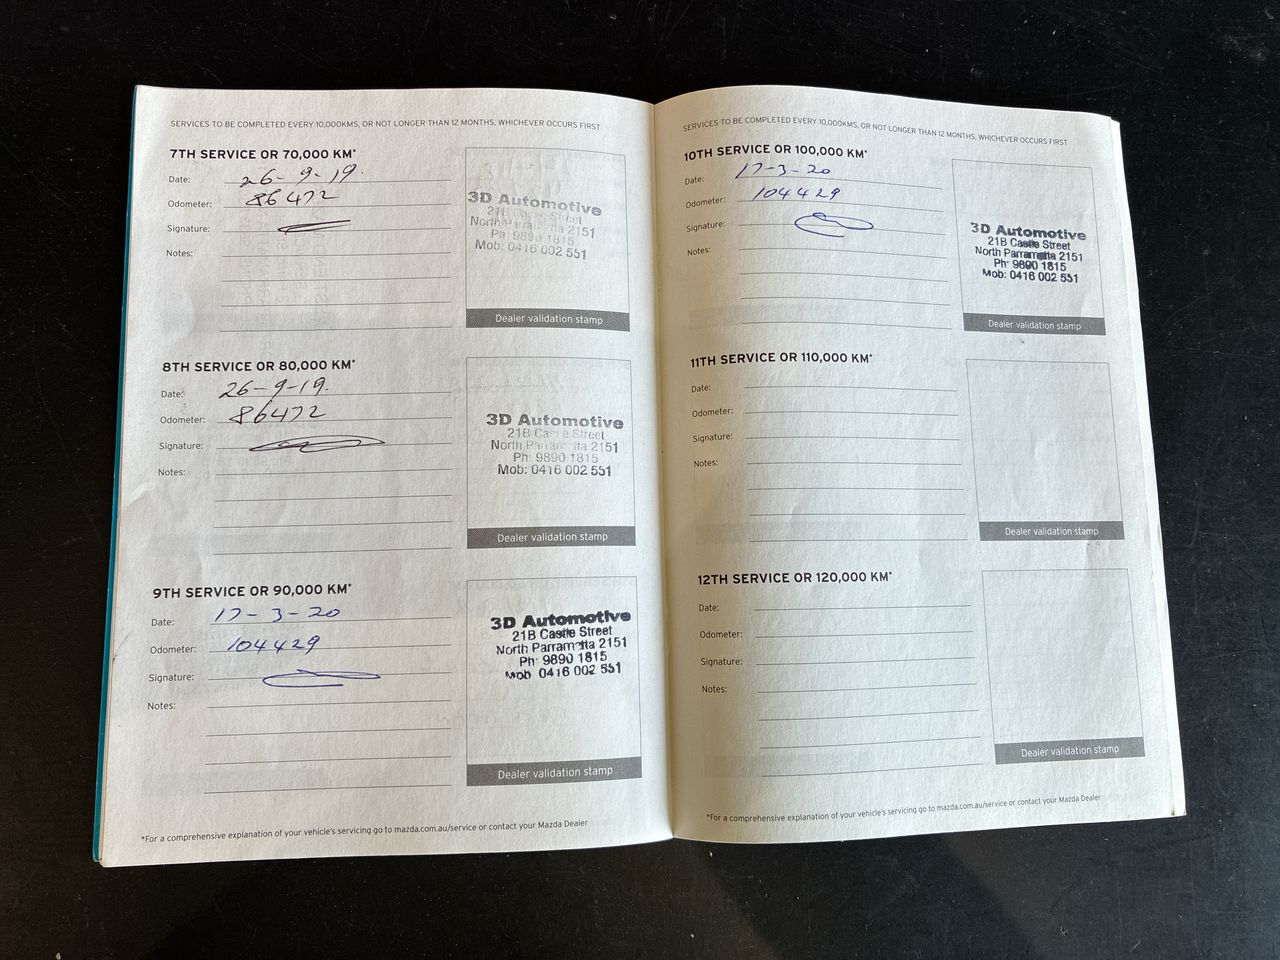 SERVICES TO BE COMPLETED EVERY 10,000KMS, OR NOT LONGER THAN 12 MONTHS, WHICHEVER OCCURS FIRST
7TH SERVICE OR 70,000 KM*
Date: 26-9-19.
Odometer: 86472
Signature:
Notes:
3D Automotive
21B Castle Street
North Parramatta 2151
Ph 9890 1815
Mob: 0416 002 551
Dealer validation stamp
8TH SERVICE OR 80,000 KM*
Date: 26-9-19.
Odometer: 86472
Signature:
Notes:
3D Automotive
21B Castle Street
North Parramatta 2151
Ph: 9890 1815
Mob: 0416 002 551
Dealer validation stamp
9TH SERVICE OR 90,000 KM*
Date: 17-3-20
Odometer: 104429
Signature:
Notes:
3D Automotive
21B Castle Street
North Parramatta 2151
Ph: 9890 1815
Mob 0416 002 551
Dealer validation stamp
*For a comprehensive explanation of your vehicle's servicing go to mazda.com.au/service or contact your Mazda Dealer
SERVICES TO BE COMPLETED EVERY 10,000KMS, OR NOT LONGER THAN 12 MONTHS, WHICHEVER OCCURS FIRST
10TH SERVICE OR 100,000 KM*
Date: 17-3-20
Odometer: 104429
Signature:
Notes:
3D Automotive
21B Castle Street
North Parramatta 2151
Ph: 9890 1815
Mob: 0416 002 551
Dealer validation stamp
11TH SERVICE OR 110,000 KM*
Date:
Odometer:
Signature:
Notes:
Dealer validation stamp
12TH SERVICE OR 120,000 KM*
Date:
Odometer:
Signature:
Notes:
Dealer validation stamp
*For a comprehensive explanation of your vehicle's servicing go to mazda.com.au/service or contact your Mazda Dealer